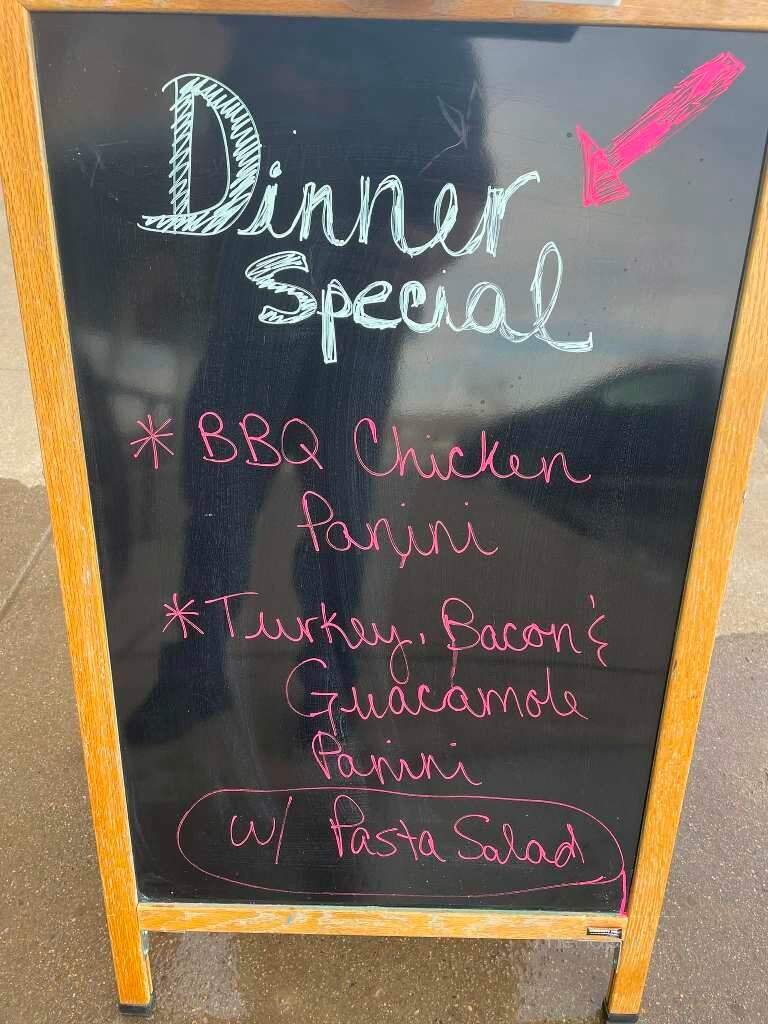 Dinner
Special
* BBQ Chicken
Panini
* Turkey, Bacon &
Guacamole
Panini
w/ Pasta Salad